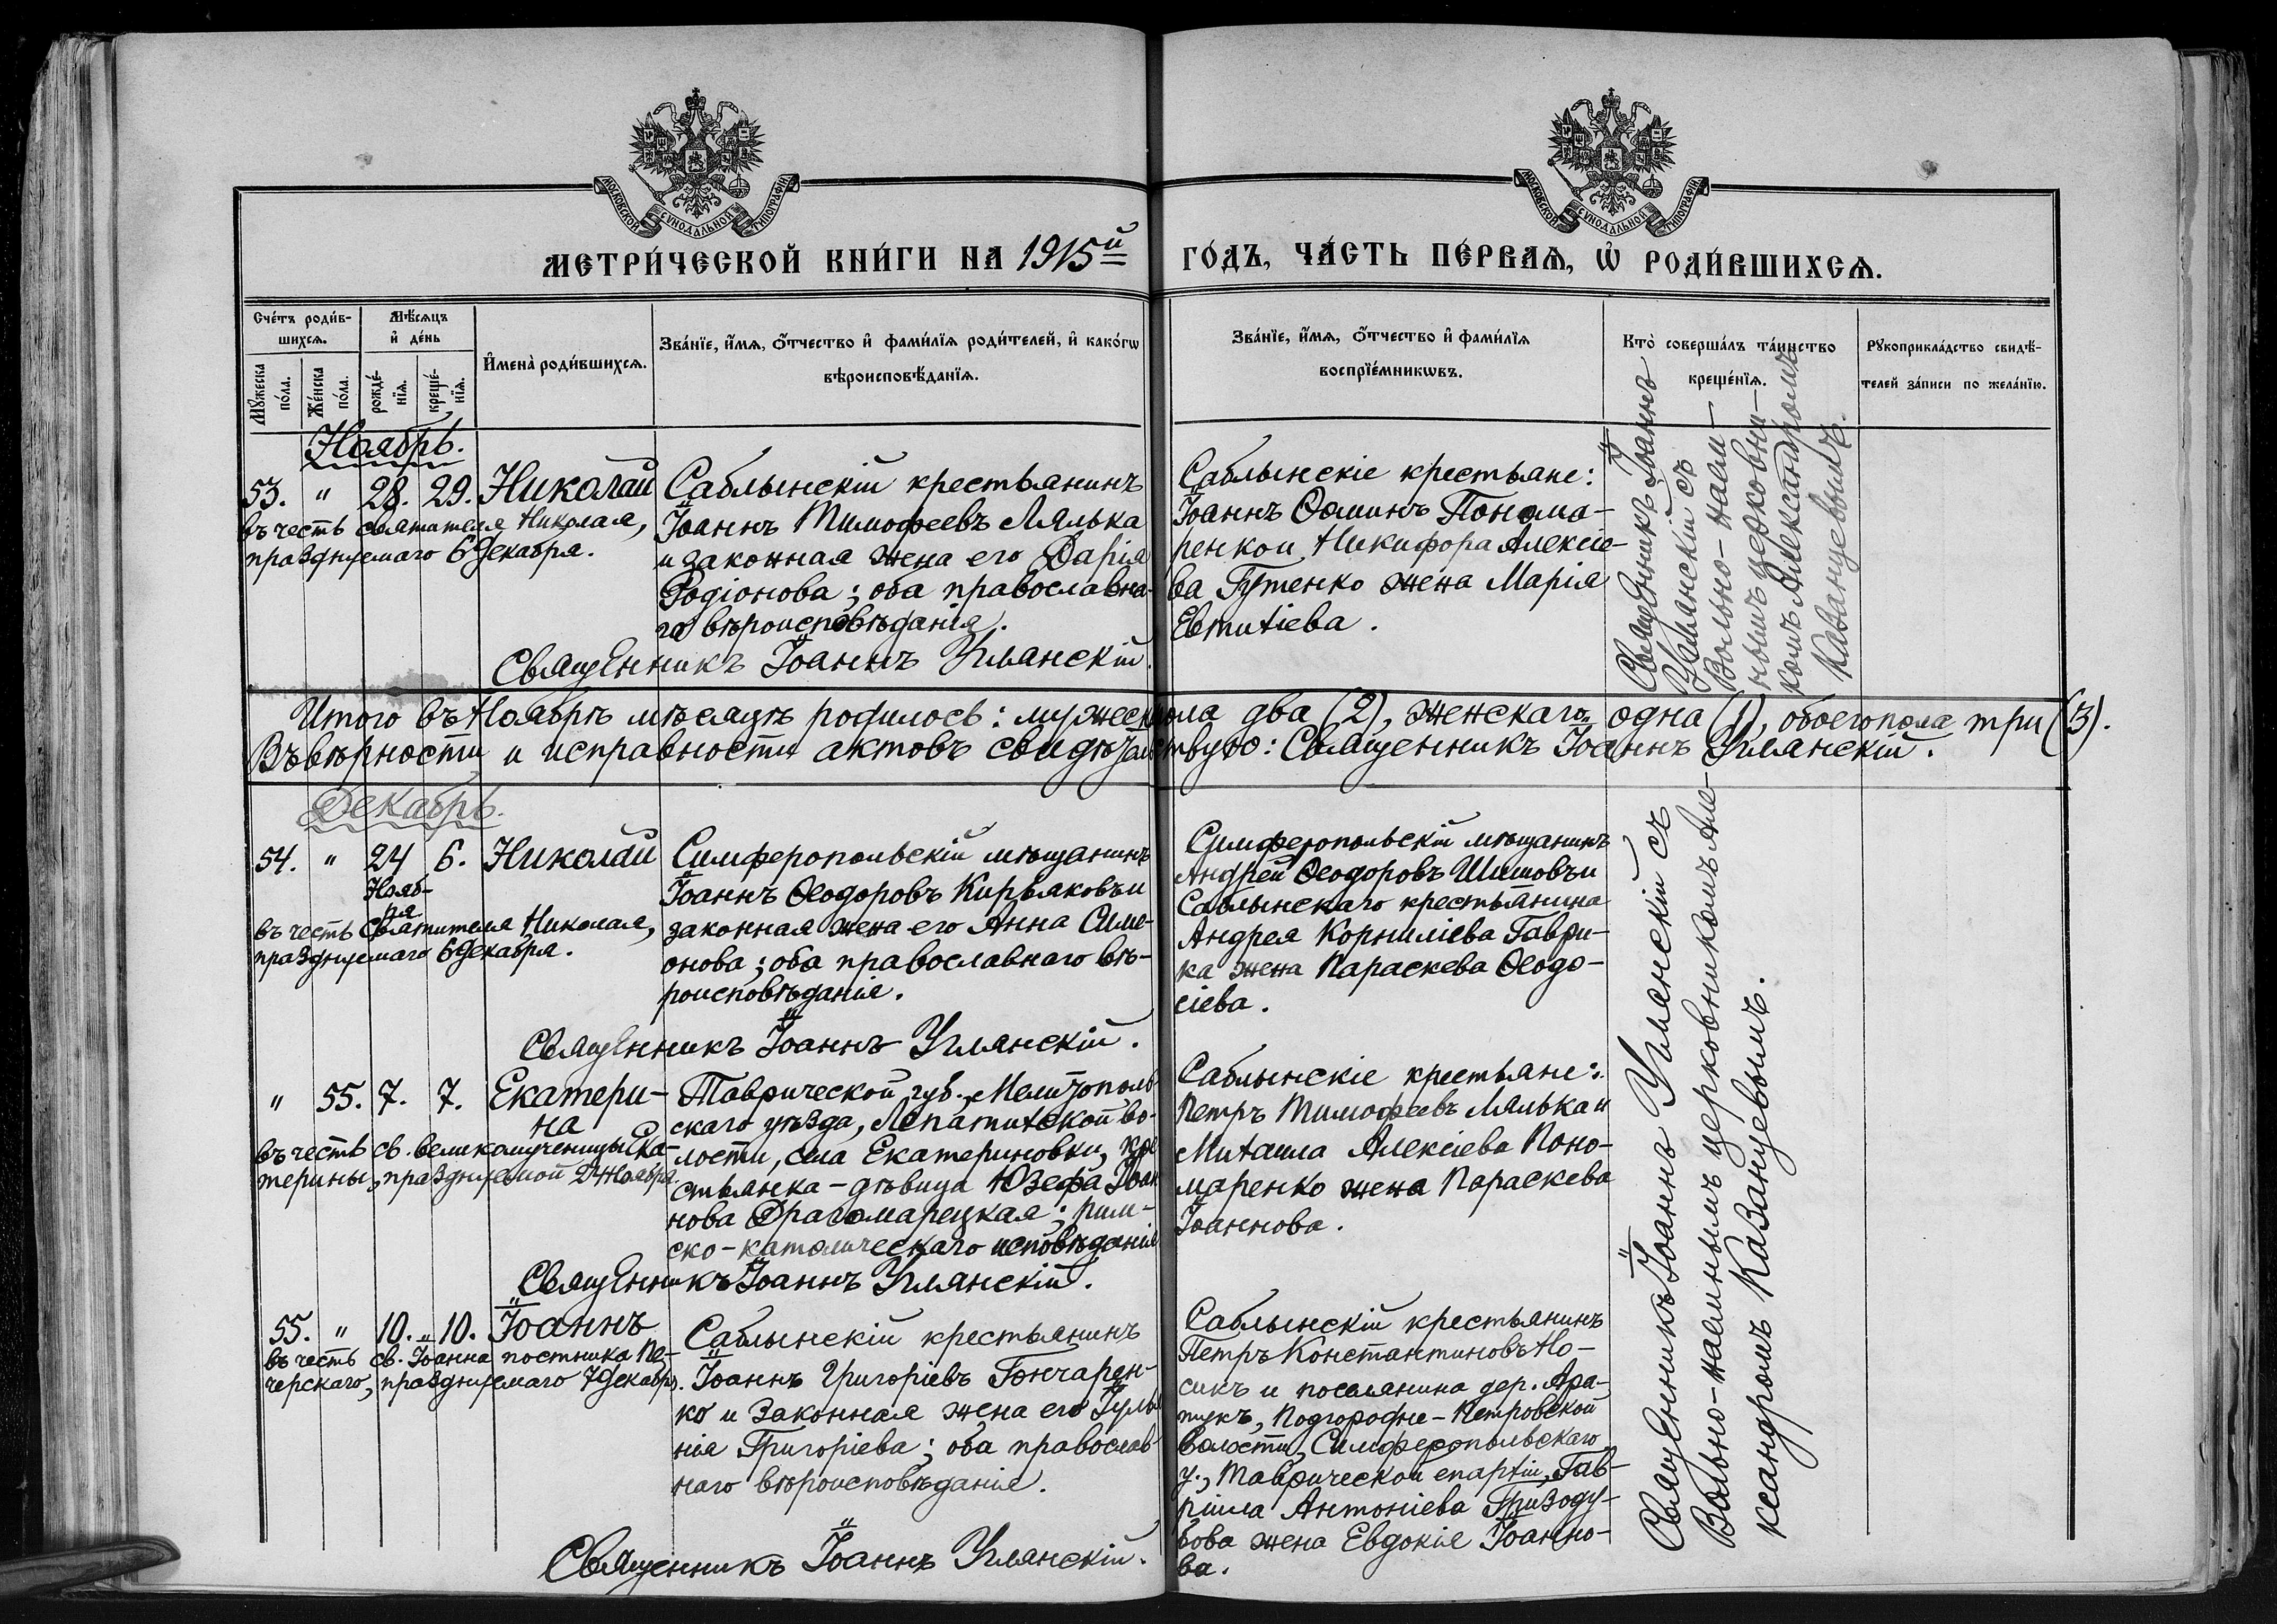 МОСКОВСКОЙ СѴНОДАЛЬНОЙ ТИПОГРАФІИ.
МОСКОВСКОЙ СѴНОДАЛЬНОЙ ТИПОГРАФІИ.
МЕТРИ́ЧЕСКОЙ КНИ́ГИ НА 1915й ГО́ДЪ, ЧА́СТЬ ПЕ́РВАѦ, Ѡ҆ РОДИ́ВШИХСѦ.
Сче́тъ роди́в-
шихсѧ.
Мꙋ́жеска
по́ла.
Же́нска
по́ла.
Мѣ́сѧцъ
и҆ де́нь
рожде́-
нїѧ.
креще́-
нїѧ.
И҆мена̀ роди́вшихсѧ.
Зва́нїе, и҆́мѧ, ѻ҆́тчество и҆ фами́лїѧ роди́телей, и҆ како́гѡ
вѣроисповѣ́данїѧ.
Зва́нїе, и҆́мѧ, ѻ҆́тчество и҆ фами́лїѧ
воспрїе́мникѡвъ.
Кто̀ соверша́лъ та́инство
креще́нїѧ.
Рꙋкоприкла́дство свидѣ́-
телей за́писи по жела́нїю.
Ноябрь.
53. " 28. 29. Николай
въ честь святителя Николая,
празднуемаго 6 Декабря.
Саблынскій крестьянинъ
Іоаннъ Тимофеевъ Лялька
и законная жена его Дарія
Родіонова; оба православна-
го вѣроисповѣданія.
Священникъ Іоаннъ Углянскій.
Саблынскіе крестьяне:
Іоаннъ Ѳоминъ Понома-
ренко и Никифора Алексіе-
ва Гутенко жена Марія
Евтихіева.
Священникъ Іоаннъ
Углянскій съ
Вольно-наем-
нымъ церковни-
комъ Александромъ
Казанцевымъ.
Итого въ Ноябрѣ мѣсяцѣ родилось: мужеск. пола два (2), женскаго одна (1), обоего пола три (3).
Въ вѣрности и исправности актовъ свидѣтельствую: Священникъ Іоаннъ Углянскій.
Декабрь.
54. " 24 6. Николай
Нояб-
ря
въ честь Святителя Николая,
празднуемаго 6 Декабря.
Симферопольскій мѣщанинъ
Іоаннъ Ѳеодоровъ Кирьяковъ и
законная жена его Анна Симе-
онова; оба православнаго вѣ-
роисповѣданія.
Священникъ Іоаннъ Углянскій.
Симферопольскій мѣщанинъ
Андрей Ѳеодоровъ Шишовъ и
Саблынскаго крестьянина
Андрея Корниліева Гаври-
ка жена Параскева Ѳеодо-
сіева.
" 55. 7. 7. Екатери-
на
въ честь св. великомученицы Ека-
терины, празднуемой 24 Ноября.
Таврической губ., Мелитополь-
скаго уѣзда, Лепатихской во-
лости, села Екатериновки, кре-
стьянка - дѣвица Юзефа Іоан-
нова Драгомарецкая; рим-
ско-католическаго исповѣданія
Священникъ Іоаннъ Углянскій.
Саблынскіе крестьяне:
Петръ Тимофеевъ Лялька и
Михаила Алексіева Поно-
маренко жена Параскева
Іоаннова.
55. " 10. " 10. Іоаннъ
въ честь св. Іоанна постника Пе-
черскаго, празднуемаго 7 Декабря.
Саблынскій крестьянинъ
Іоаннъ Григоріевъ Гончарен-
ко и законная жена его Іулі-
нія Григоріева; оба православ-
наго вѣроисповѣданія.
Священникъ Іоаннъ Углянскій.
Саблынскій крестьянинъ
Петръ Константиновъ Но-
сикъ и поселянина дер.
Подгородне-Петровской
волости, Симферопольскаго
у., Таврической епархіи, Гав-
ріила Антоніева Гризоду-
бова жена Евдокія Іоанно-
ва.
Священникъ Іоаннъ Углянскій съ
Вольно-наемнымъ церковникомъ Але-
ксандромъ Казанцевымъ.